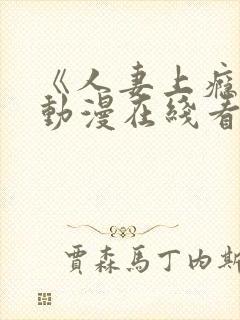 《人妻上癮
動漫在綫看
賈森馬丁內斯